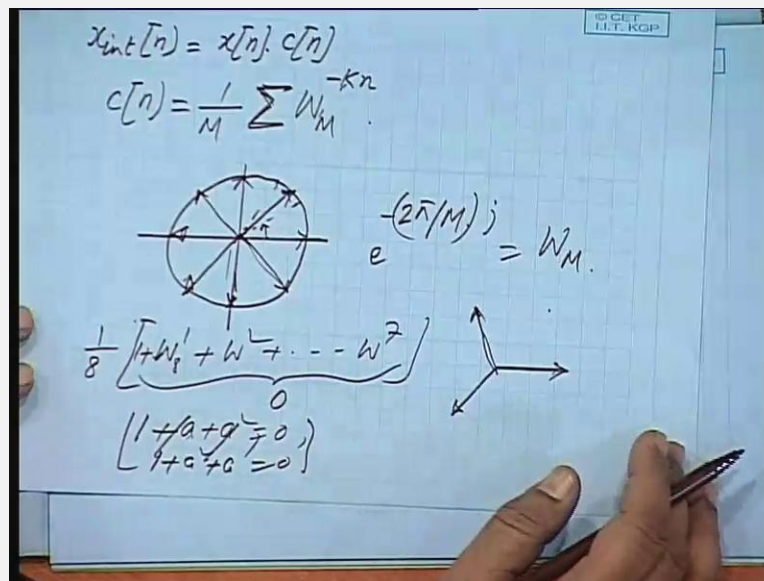 © CET
I.I.T. KGP
x_int[n] = x[n]. c[n]
c[n] = 1/M Σ W_M^-kn.
e^-(2π/M)j = W_M.
1/8 [1+W_8^1 + W^2 + ---- W^7]
0
[1+a+a^2=0,
1+a^2+a=0]